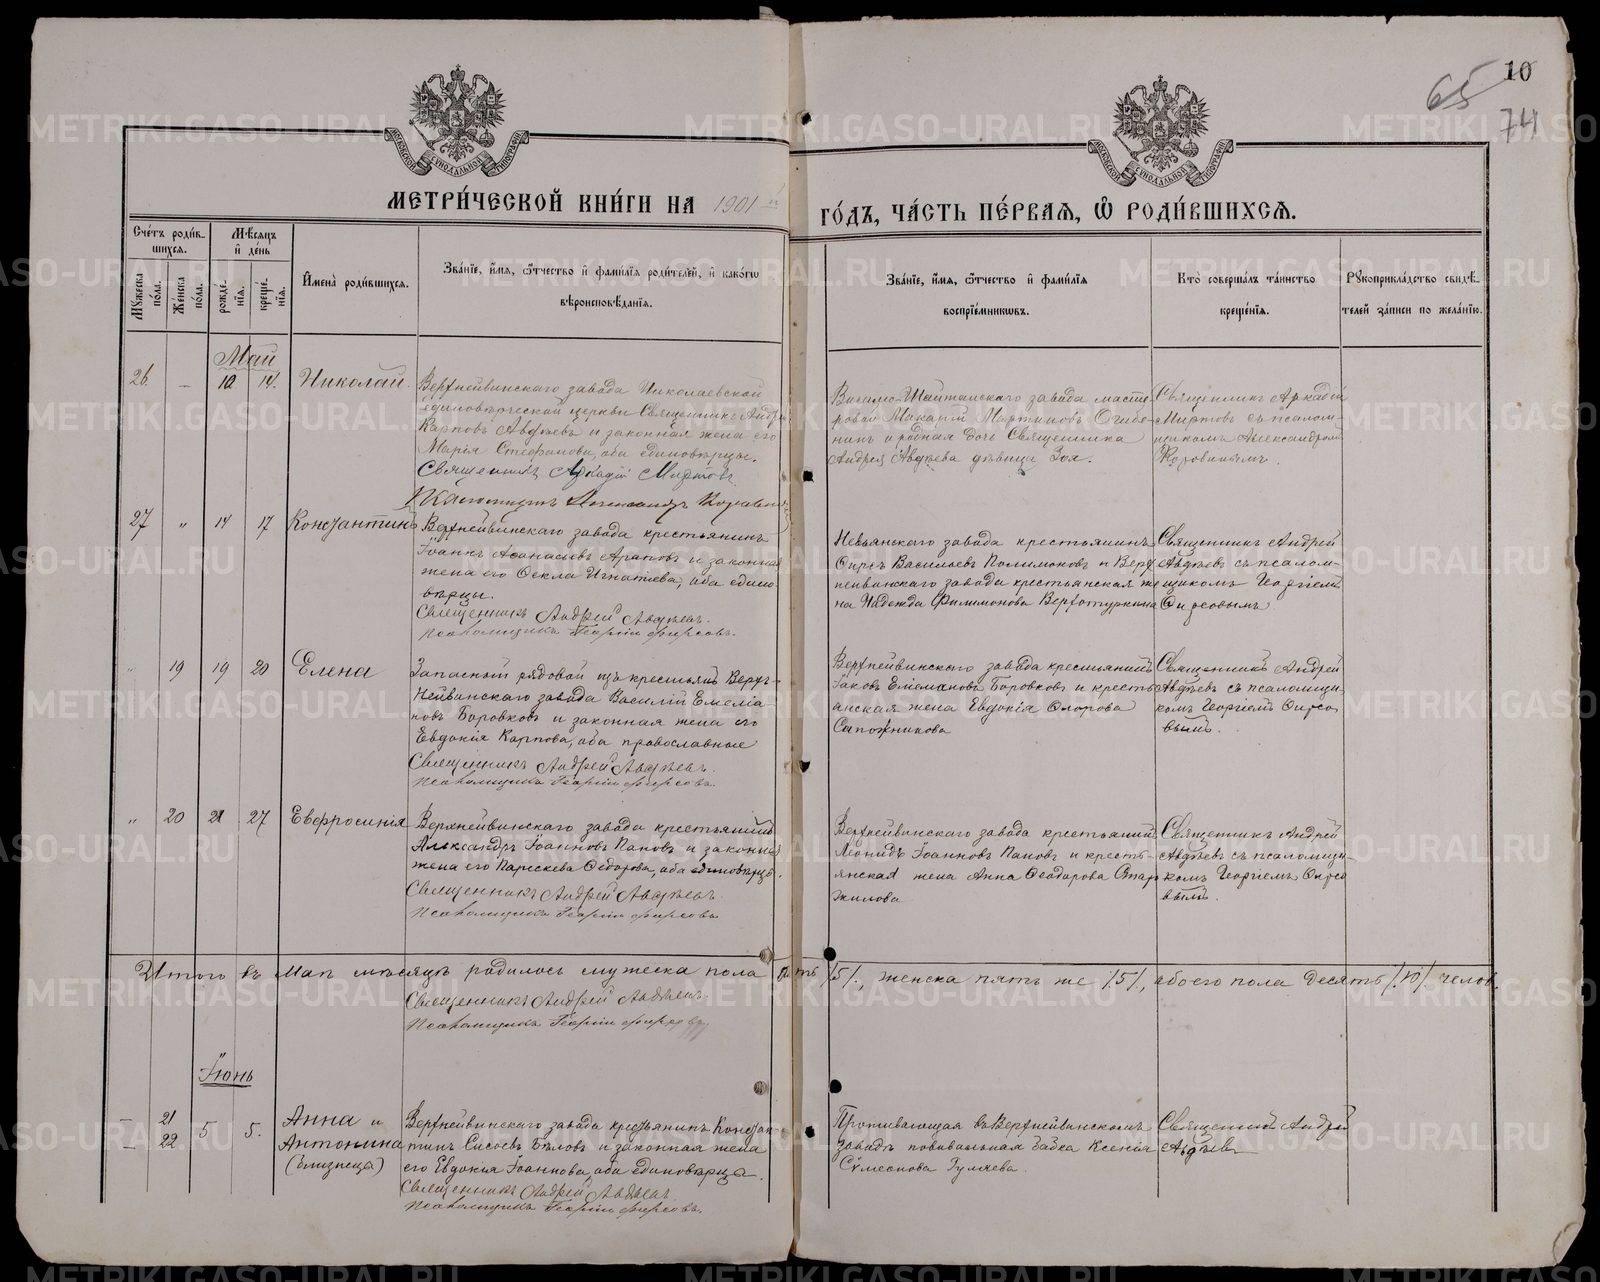 65
10
74
МЕТРИ́ЧЕСКОЙ КНИ́ГИ НА 1901 й ГО́ДЪ, ЧА́СТЬ ПЕ́РВАЯ, Ѿ РОДИ́ВШИХСЯ.
МОСКОВСКОЙ СУНОДАЛЬНОЙ ТИПОГРАФІИ
МОСКОВСКОЙ СУНОДАЛЬНОЙ ТИПОГРАФІИ
Сче́тъ роди́в-
шихся.
Мѣ́сяцъ
и де́нь
Мꙋ́жеска по́ла.
Же́нска по́ла.
рожде́-
нія.
креще́-
нія.
Имена̀ роди́вшихся.
Зва́ніе, и́мя, ѻ҆́тчество и фамі́лія роди́телей, и како́гѡ
вѣроисповѣ́данія.
Зва́ніе, и́мя, ѻ҆́тчество и фамі́лія
воспріе́мникѡвъ.
Кто̀ соверша́лъ та́инство
креще́нія.
Рꙋкоприкла́дство свидѣ́-
телей за́писи по жела́нію.
Май
26. — 10 14. Николай.
Верхнейвинскаго завода Николаевской
единоверческой церкви Священникъ Андрей
Карповъ Авдѣевъ и законная жена его
Марія Стефанова, оба единовѣрцы.
Священникъ Аркадій Мартовъ
Псаломщикъ Александръ Коровинъ
Висимо-Шайтанскаго завода масте-
ровой Макарій Мартиновъ Огибе-
нинъ и родная дочь Священника
Андрея Авдѣева дѣвица Зоя.
Священникъ Аркадій
Мартовъ съ псалом-
щикомъ Александромъ
Коровинымъ.
27 " 14 17 Константинъ
Верхнейвинскаго завода крестьянинъ
Іоаннъ Аѳанасіевъ Араповъ и законная
жена его Ѳекла Игнатіева, оба едино-
вѣрцы.
Священникъ Андрей Авдѣевъ.
Псаломщикъ Георгій Фирсовъ.
Невьянскаго завода крестьянинъ
Ѳирсъ Васильевъ Полимоновъ и Верх-
нейвинскаго завода крестьянская же-
на Надежда Филимонова Верхотуркина
Священникъ Андрей
Авдѣевъ съ псалом-
щикомъ Георгіемъ
Ѳирсовымъ.
" 19 19 20 Елена
Запасный рядовой изъ крестьянъ Верх-
нейвинскаго завода Василій Емелiа-
новъ Боровковъ и законная жена его
Евдокія Карпова, оба православные
Священникъ Андрей Авдѣевъ.
Псаломщикъ Георгій Фирсовъ.
Верхнейвинскаго завода крестьянинъ
Іаковъ Емелiановъ Боровковъ и кресть-
анская жена Евдокія Ѳлорова
Сапожникова
Священникъ Андрей
Авдѣевъ съ псаломщи-
комъ Георгіемъ Ѳирсо
вымъ.
" 20 21 27 Евфросинія
Верхнейвинскаго завода крестьянинъ
Александръ Іоанновъ Пановъ и законная
жена его Параскева Ѳедорова, оба единовѣрцы.
Священникъ Андрей Авдѣевъ.
Псаломщикъ Георгій Фирсовъ
Верхнейвинскаго завода крестьянинъ
Леонидъ Іоанновъ Пановъ и кресть-
янская жена Анна Ѳеодорова Стар
жилова
Священникъ Андрей
Авдѣевъ съ псаломщи-
комъ Георгіемъ Ѳирсо
вымъ.
Итого въ Маѣ мѣсяцѣ родилось мужеска пола пять /5/, женска пять же /5/, обоего пола десять /10/ челов.
Священникъ Андрей Авдѣевъ.
Псаломщикъ Георгій Фирсовъ
Іюнь
— 21
— 22 5 5. Анна и
Антонина
(близнецы)
Верхнейвинскаго завода крестьянинъ Констан-
тинъ Сысоевъ Бѣловъ и законная жена
его Евдокія Іоаннова, оба единовѣрцы.
Священникъ Андрей Авдѣевъ.
Псаломщикъ Георгій Фирсовъ.
Проживающая въ Верхнейвинскомъ
заводѣ повивальная бабка Ксенія
Сѵмеонова Гуляева.
Священникъ Андрей
Авдѣевъ
METRIKI.GASO-URAL.RU